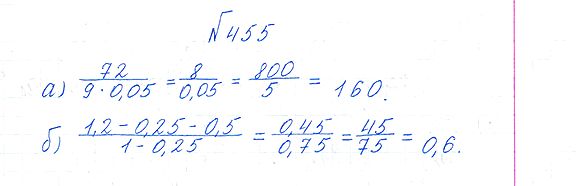 №455
а) 72/(9·0,05) = 8/0,05 = 800/5 = 160.
б) (1,2-0,25-0,5)/(1-0,25) = 0,45/0,75 = 45/75 = 0,6.